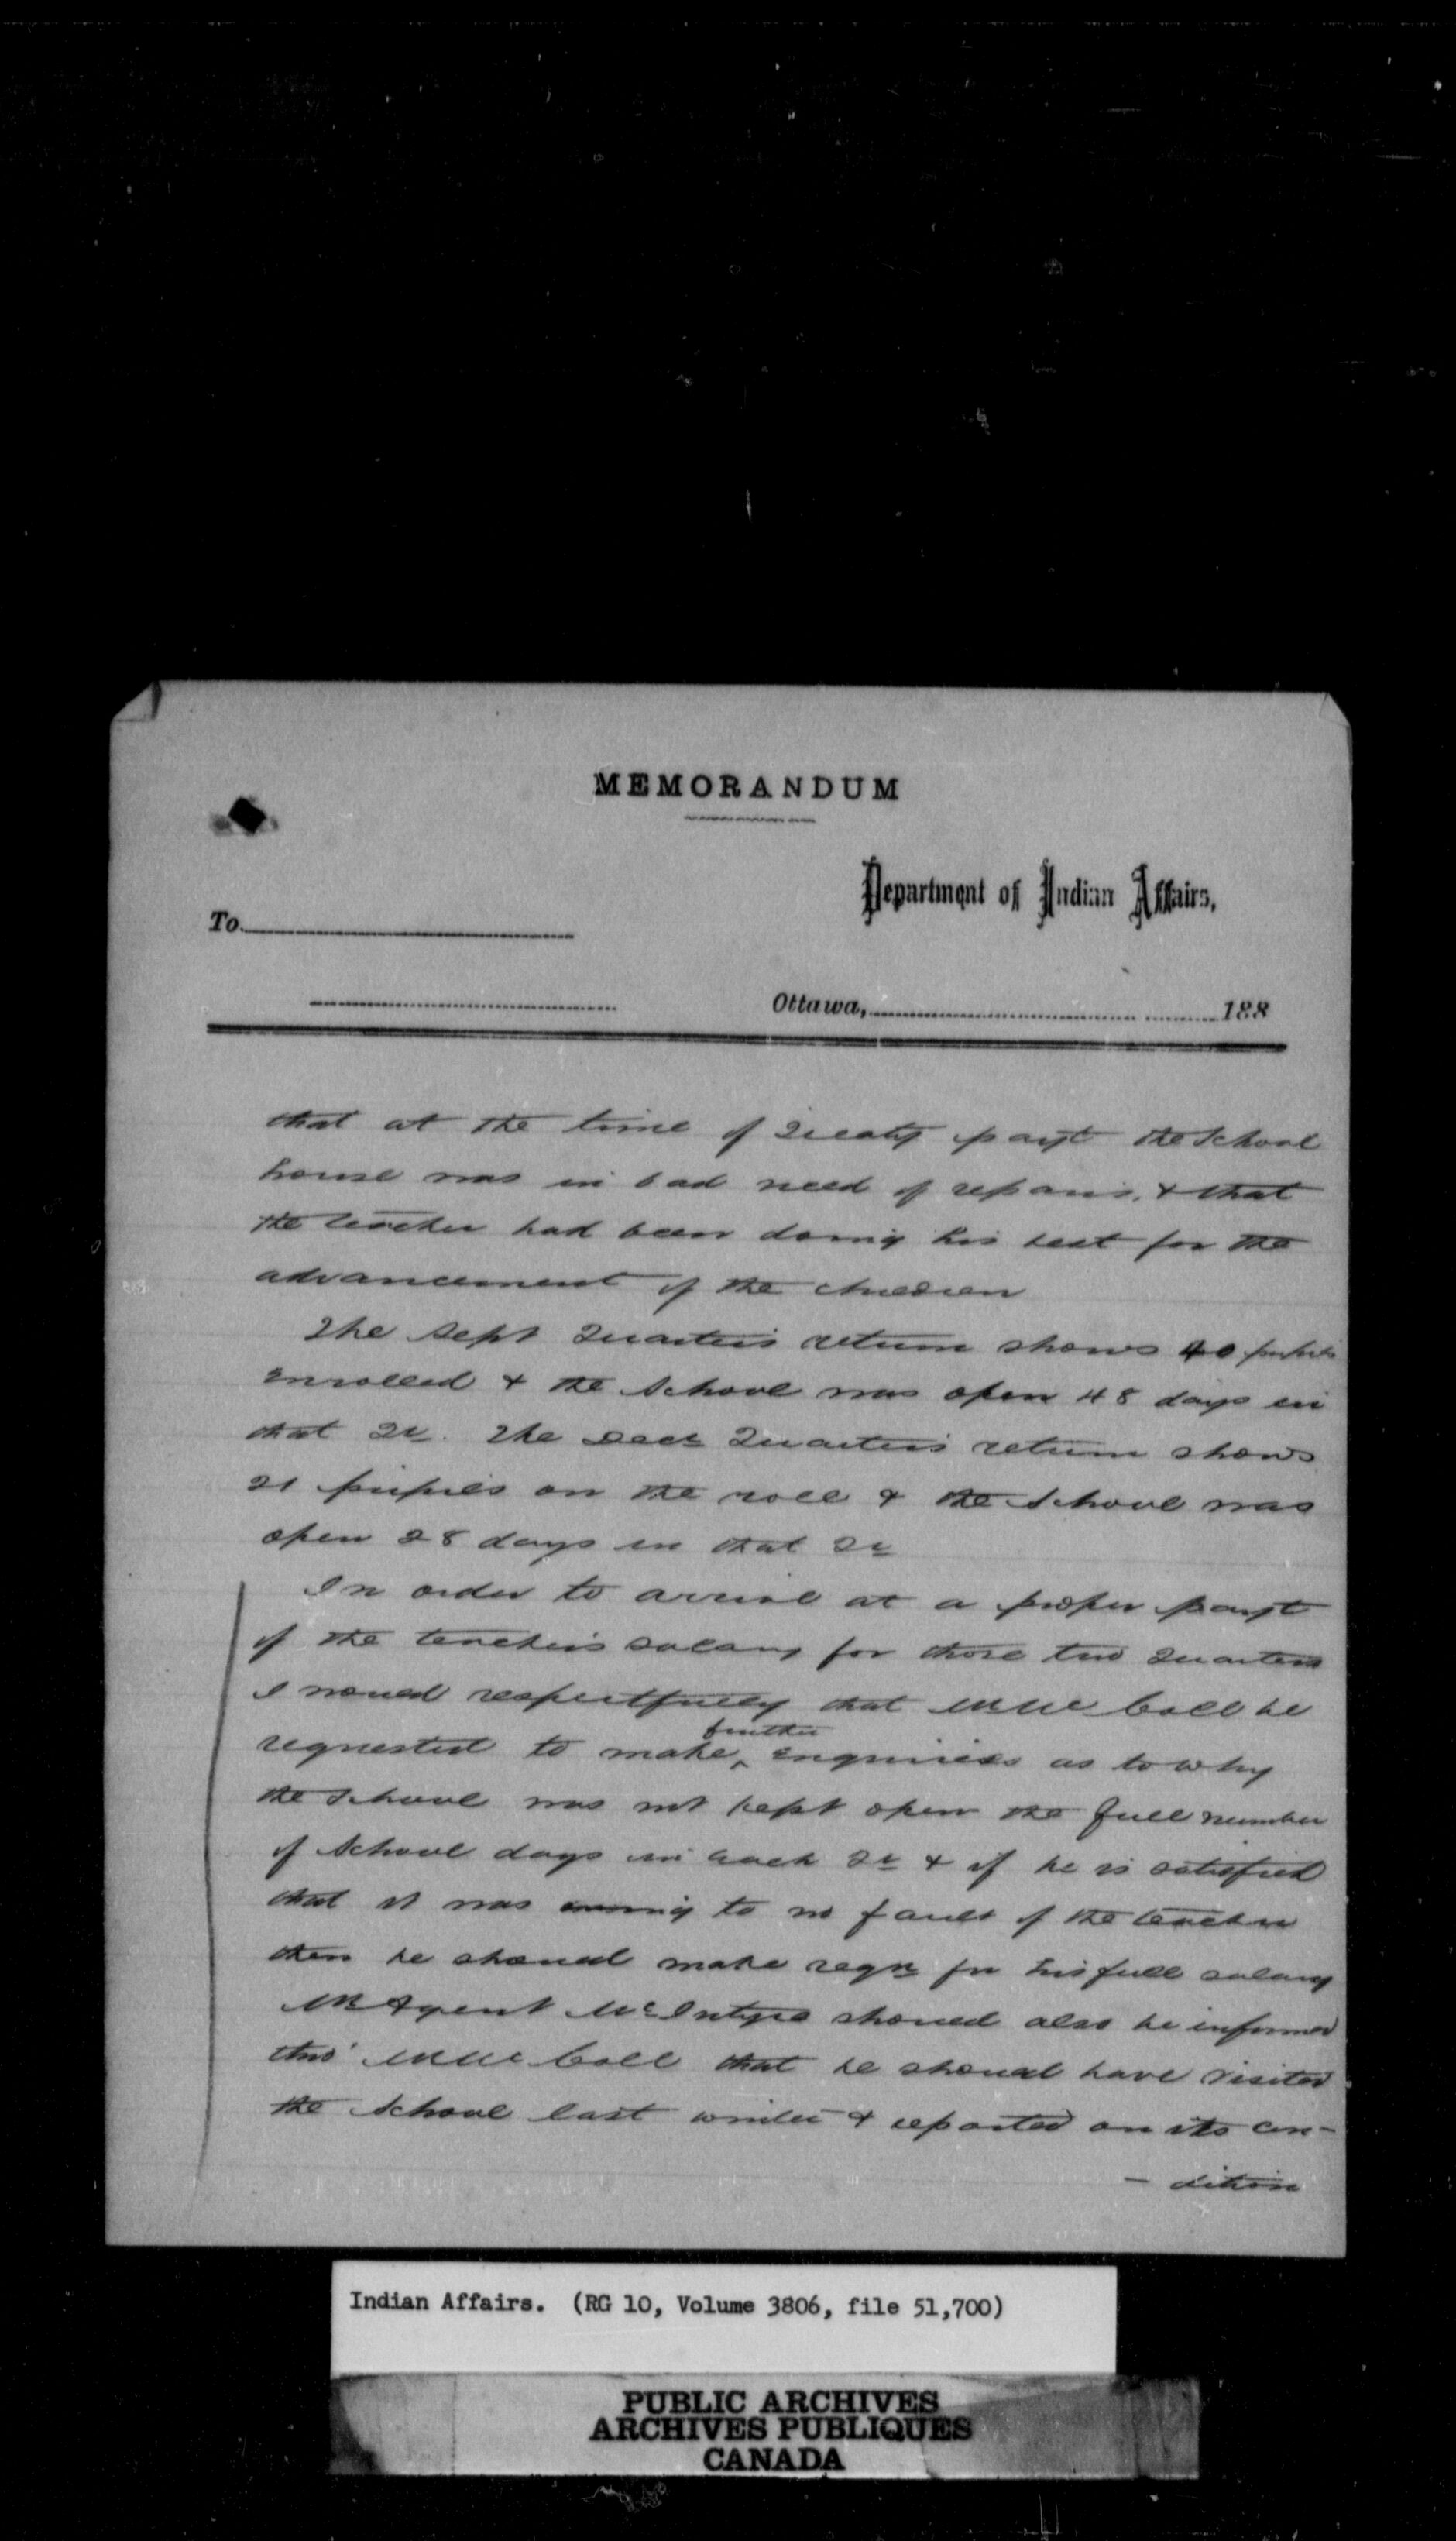 MEMORANDUM
Department of Indian Affairs,
To
Ottawa, 188
that at the time of Treaty payt the School
house was in bad need of repairs, & that
the teacher had been doing his best for the
advancement of the children
The Sept Quarter's return shows 40 pupils
enrolled & the School was open 48 days in
that Qr. The Decr Quarter's return shows
21 pupils on the roll & the School was
open 28 days in that Qr
In order to arrive at a proper payt
of the teacher's salary for those two Quarters
I would respectfully that Mr McColl be
further
requested to make ^ enquiries as to why
the School was not kept open the full number
of School days in each Qr & if he is satisfied
that it was owing to no fault of the teacher
then he should make reqn for his full salary
Mr Agent McIntyre should also be informed
thro' Mr McColl that he should have visited
the School last winter & reported on its con-
- dition
Indian Affairs. (RG 10, Volume 3806, file 51,700)
PUBLIC ARCHIVES
ARCHIVES PUBLIQUES
CANADA